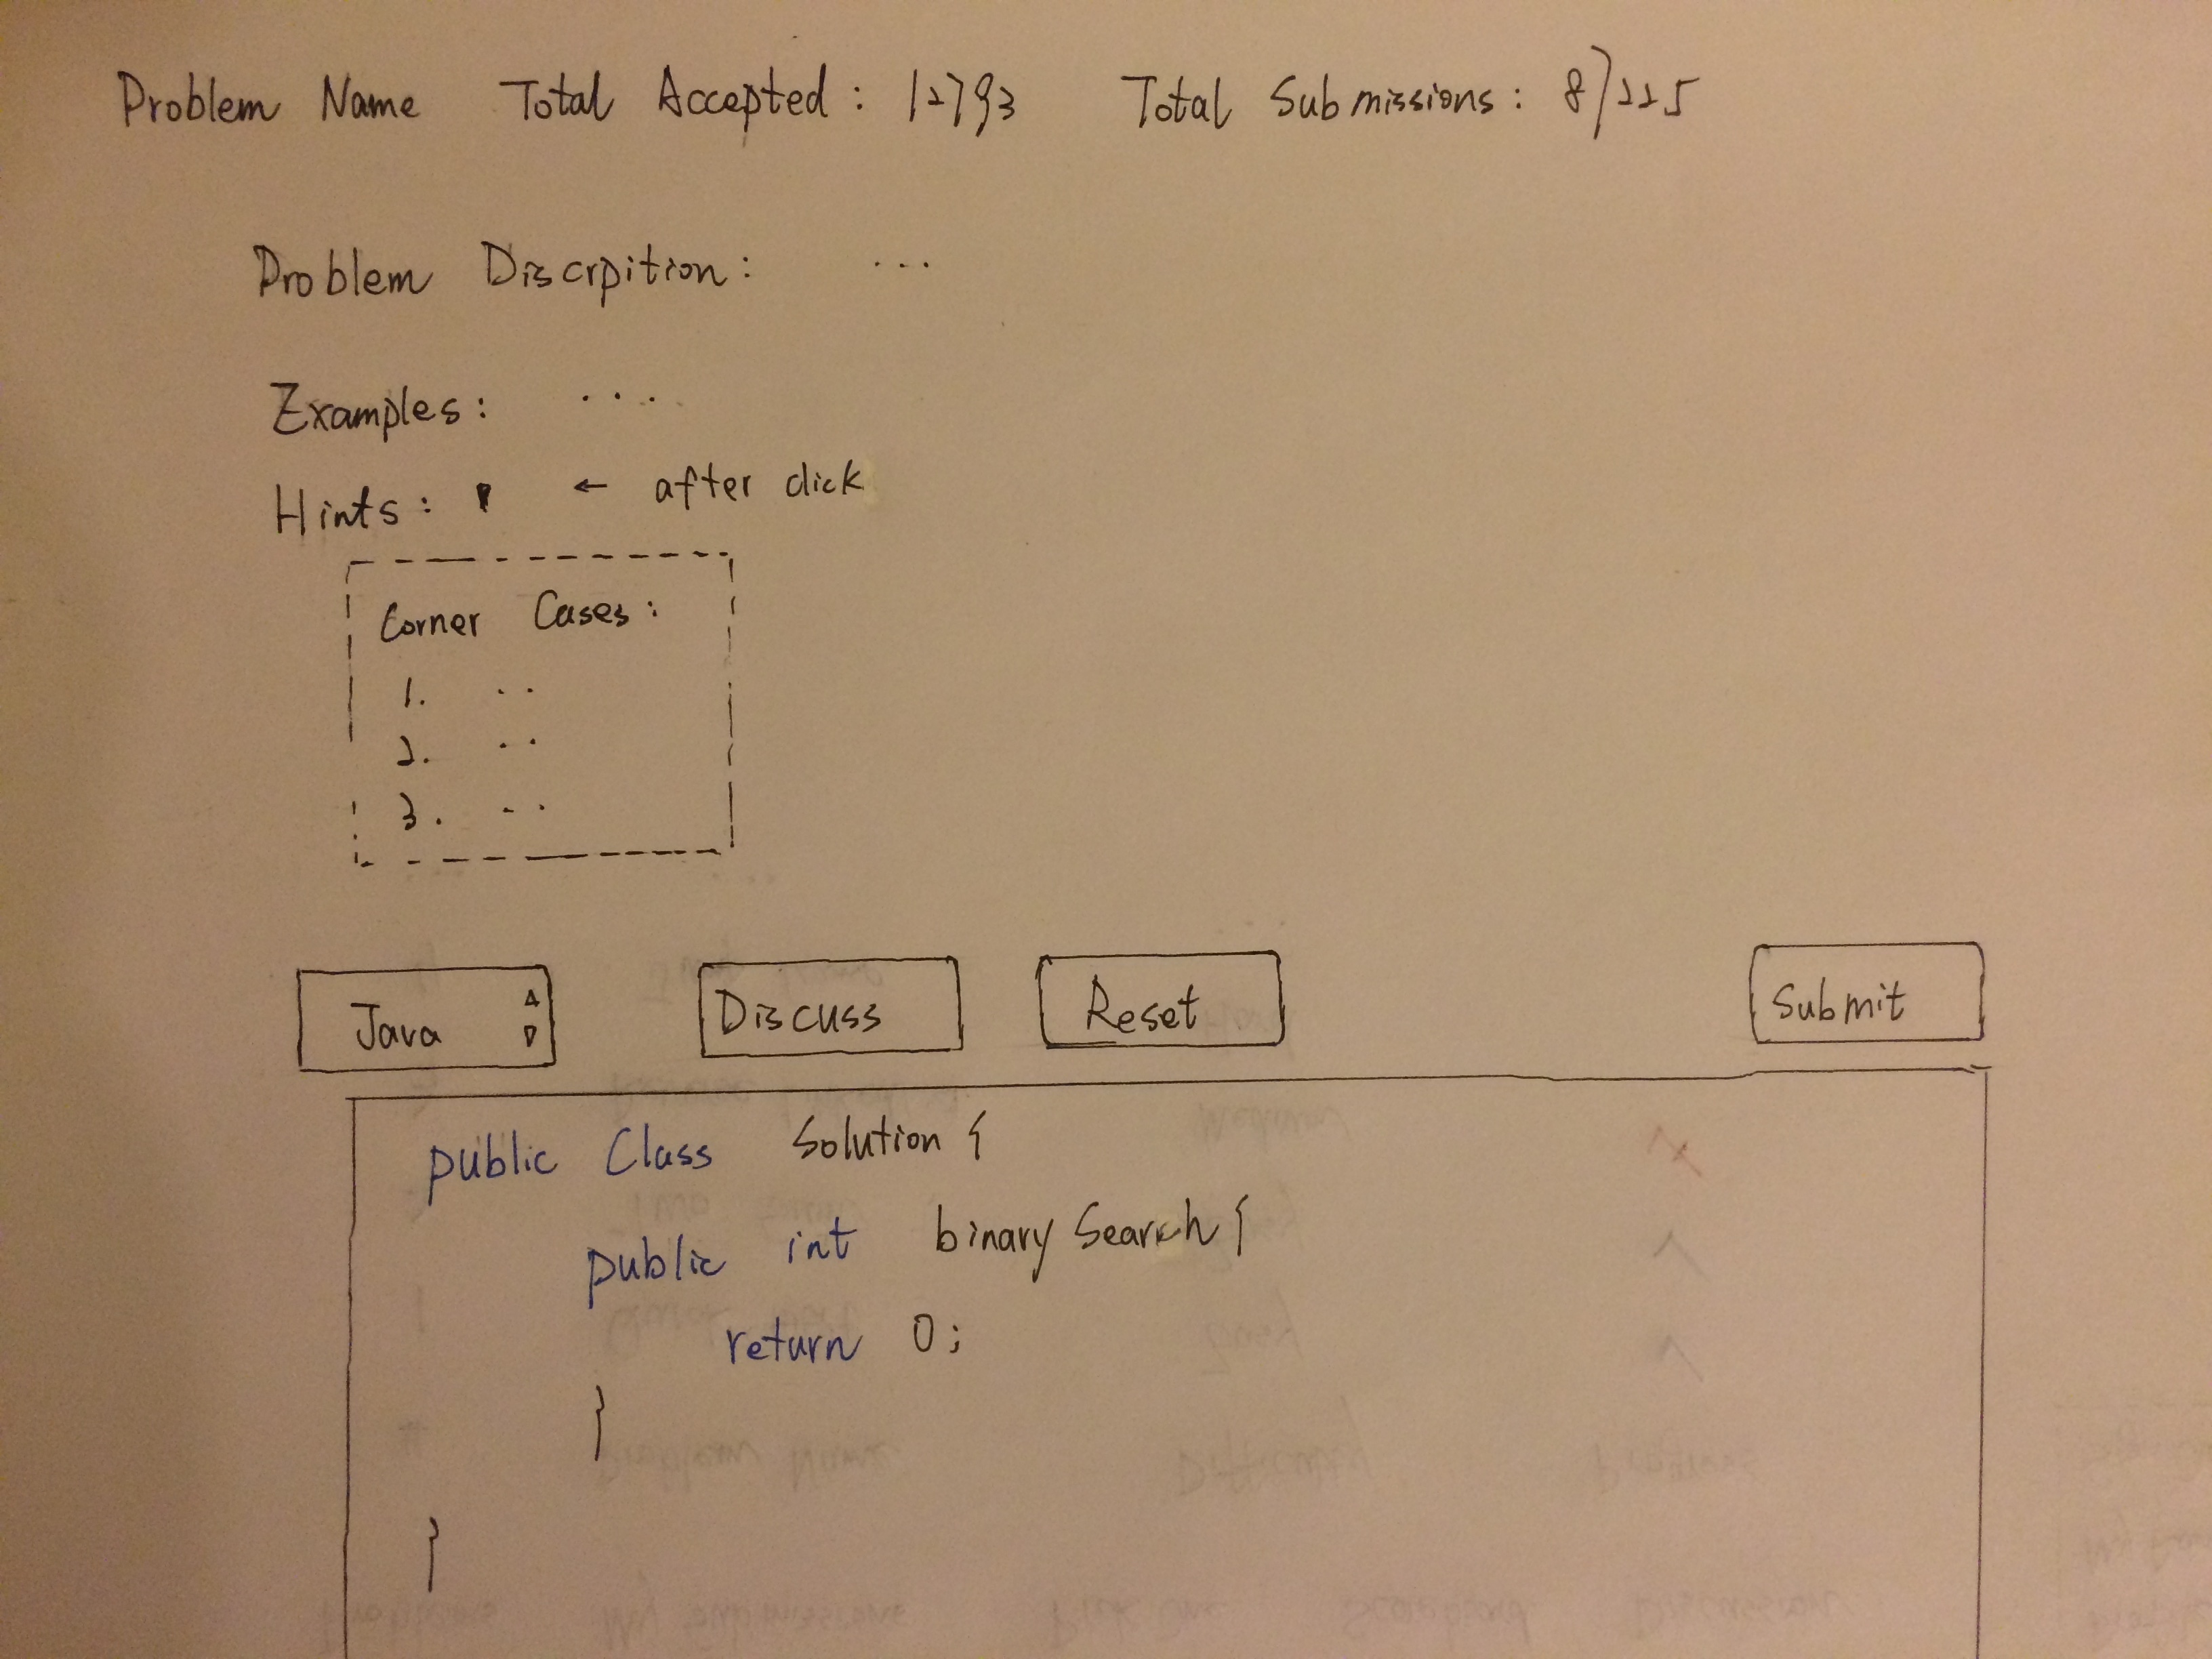 Problem Name Total Accepted: 12793 Total Submissions: 87225
Problem Discrpition: ...
Examples: ...
Hints: ← after click
Corner Cases:
1. ..
2. ..
3. ..
Java Discuss Reset Submit
public Class Solution {
public int binary Search {
return 0;
}
}